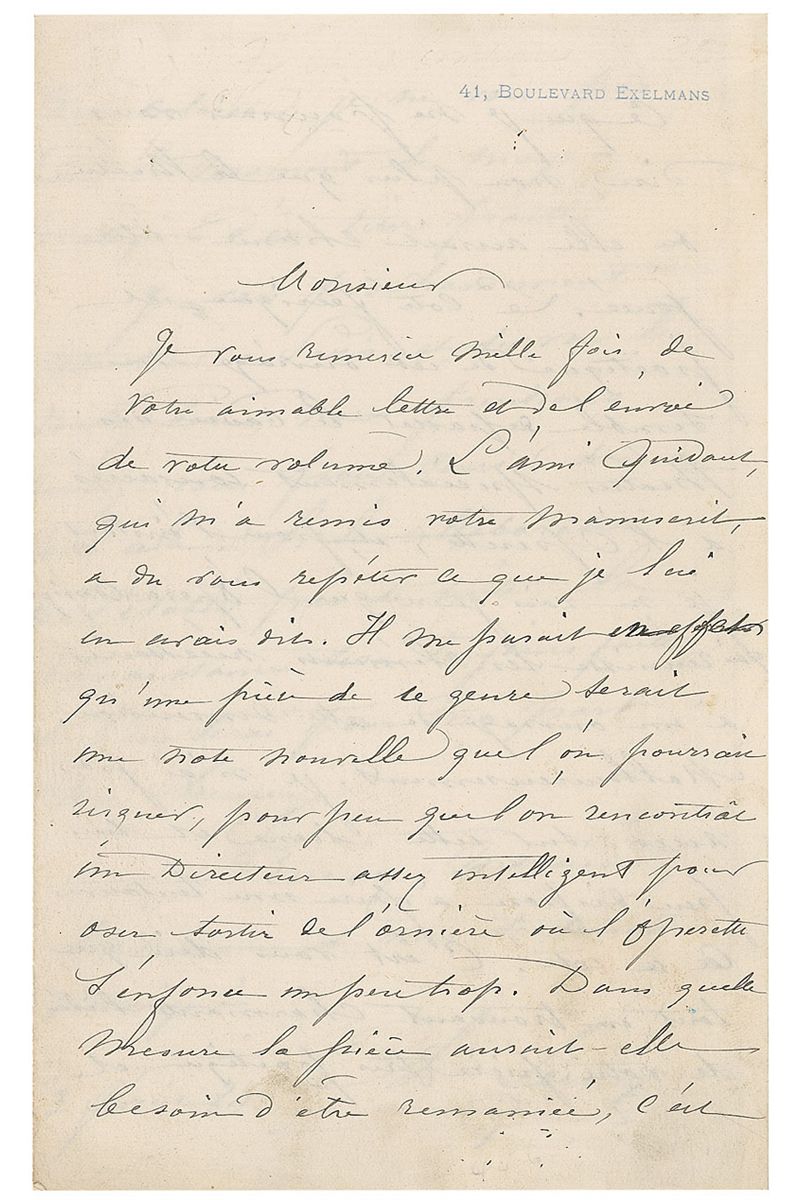 41, BOULEVARD EXELMANS
Monsieur
Je vous remercie mille fois de
votre aimable lettre et de l'envoi
de votre volume. L'ami Quidant,
qui m'a remis votre manuscrit,
a du vous repéter ce que je lui
en avais dit. Il me parait en effet
qu'une pièce de ce genre serait
une note nouvelle que l'on pourrait
risquer, pour peu que l'on rencontrât
un Directeur assez intelligent pour
oser sortir de l'ornière où l'opérette
s'enfonce un peu trop. Dans quelle
mesure la pièce aurait-elle
besoin d'être remaniée, c'est